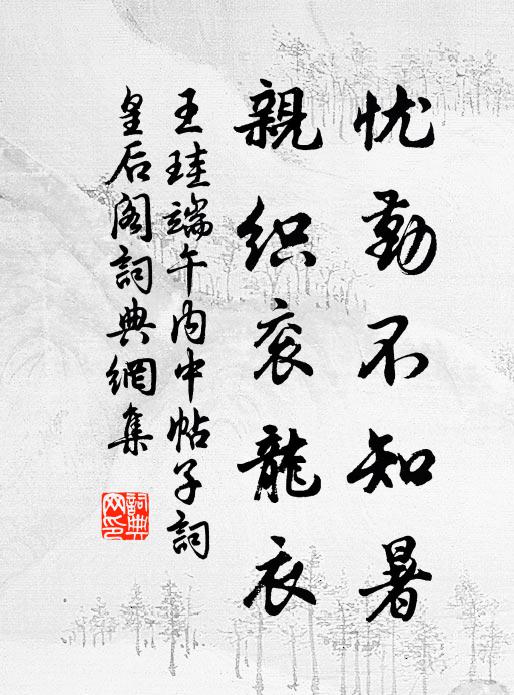 忧勤不知暑
親织衮龍衣
王珪端午内中帖子詞
皇后阁詞典網集
詞典网印